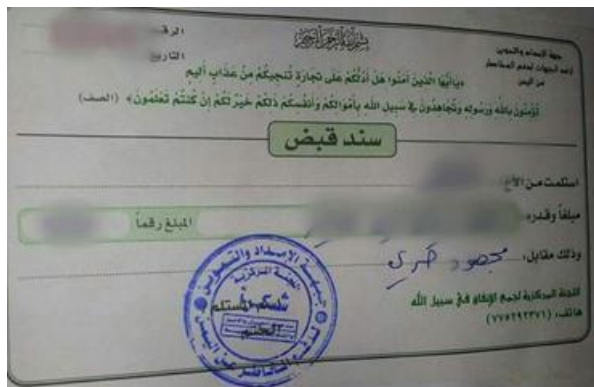 بسم الله الرحمن الرحيم
جبهة الإمداد والتموين
لدعم الجبهات لدحر المخاطر
عن اليمن
الرقـ
التاريخ
﴿يَاأَيُّهَا الَّذِينَ آمَنُوا هَلْ أَدُلُّكُمْ عَلَى تِجَارَةٍ تُنْجِيكُمْ مِنْ عَذَابٍ أَلِيمٍ
تُؤْمِنُونَ بِاللَّهِ وَرَسُولِهِ وَتُجَاهِدُونَ فِي سَبِيلِ اللَّهِ بِأَمْوَالِكُمْ وَأَنْفُسِكُمْ ذَلِكُمْ خَيْرٌ لَكُمْ إِنْ كُنْتُمْ تَعْلَمُونَ﴾ (الصف)
سند قبض
استلمت من الأخ
مبلغاً وقدره
المبلغ رقماً
وذلك مقابل: مجهود حربي
اللجنة المركزية لجمع الإنفاق في سبيل الله
هاتف: (٧٧٥٢٩٢٣٧١)
جبهة الإمداد والتموين
اللجنة المركزية
المستلم
الختم